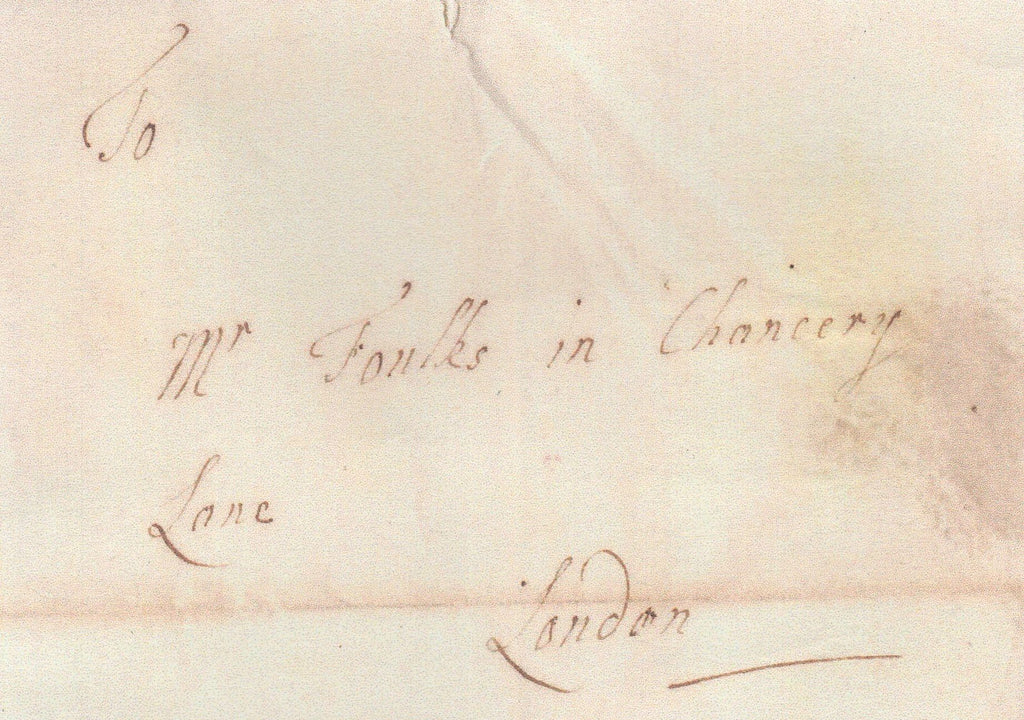 To
Mr Foulks in Chancery
Lane
London